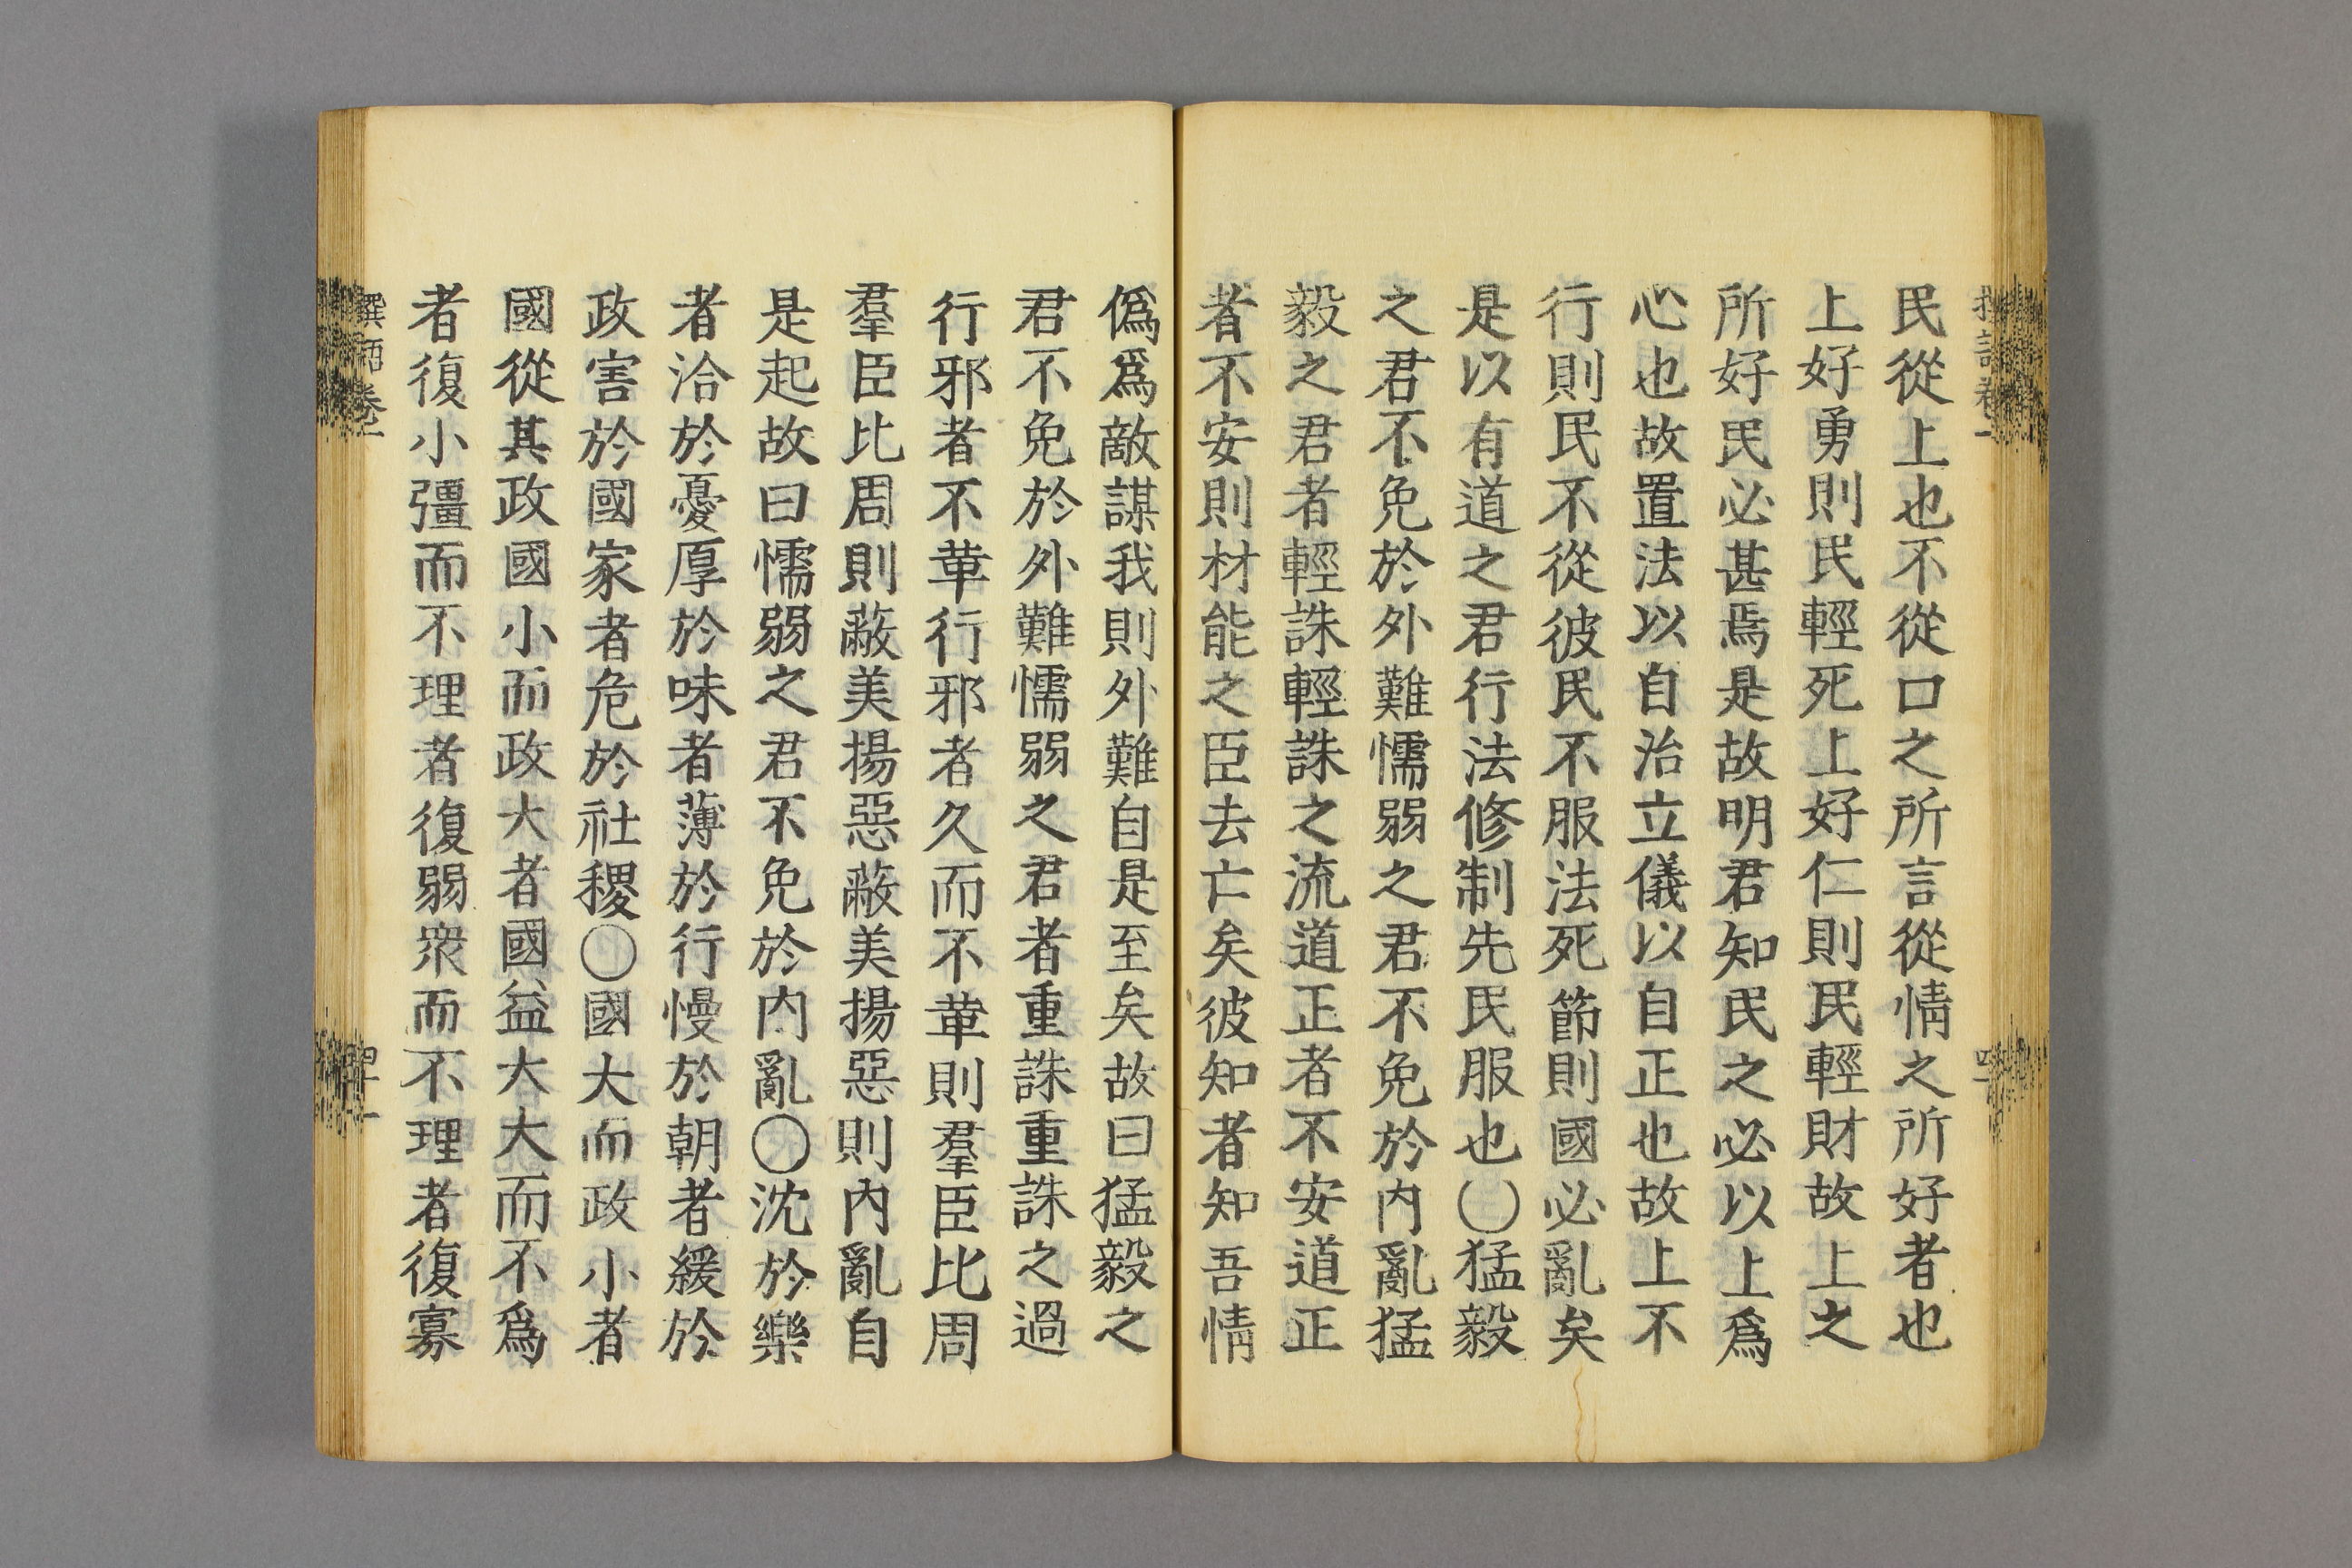 民從上也不從口之所言從情之所好者也
上好勇則民輕死上好仁則民輕財故上之
所好民必甚焉是故明君知民之必以上爲
心也故置法以自治立儀以自正也故上不
行則民不從彼民不服法死節則國必亂矣
是以有道之君行法修制先民服也〇猛毅
之君不免於外難懦弱之君不免於内亂猛
毅之君者輕誅輕誅之流道正者不安道正
者不安則材能之臣去亡矣彼知者知吾情
僞爲敵謀我則外難自是至矣故曰猛毅之
君不免於外難懦弱之君者重誅重誅之過
行邪者不革行邪者久而不革則羣臣比周
羣臣比周則蔽美揚惡蔽美揚惡則内亂自
是起故曰懦弱之君不免於内亂〇沈於樂
者洽於憂厚於味者薄於行慢於朝者緩於
政害於國家者危於社稷〇國大而政小者
國從其政國小而政大者國益大大而不爲
者復小彊而不理者復弱衆而不理者復寡
卷一